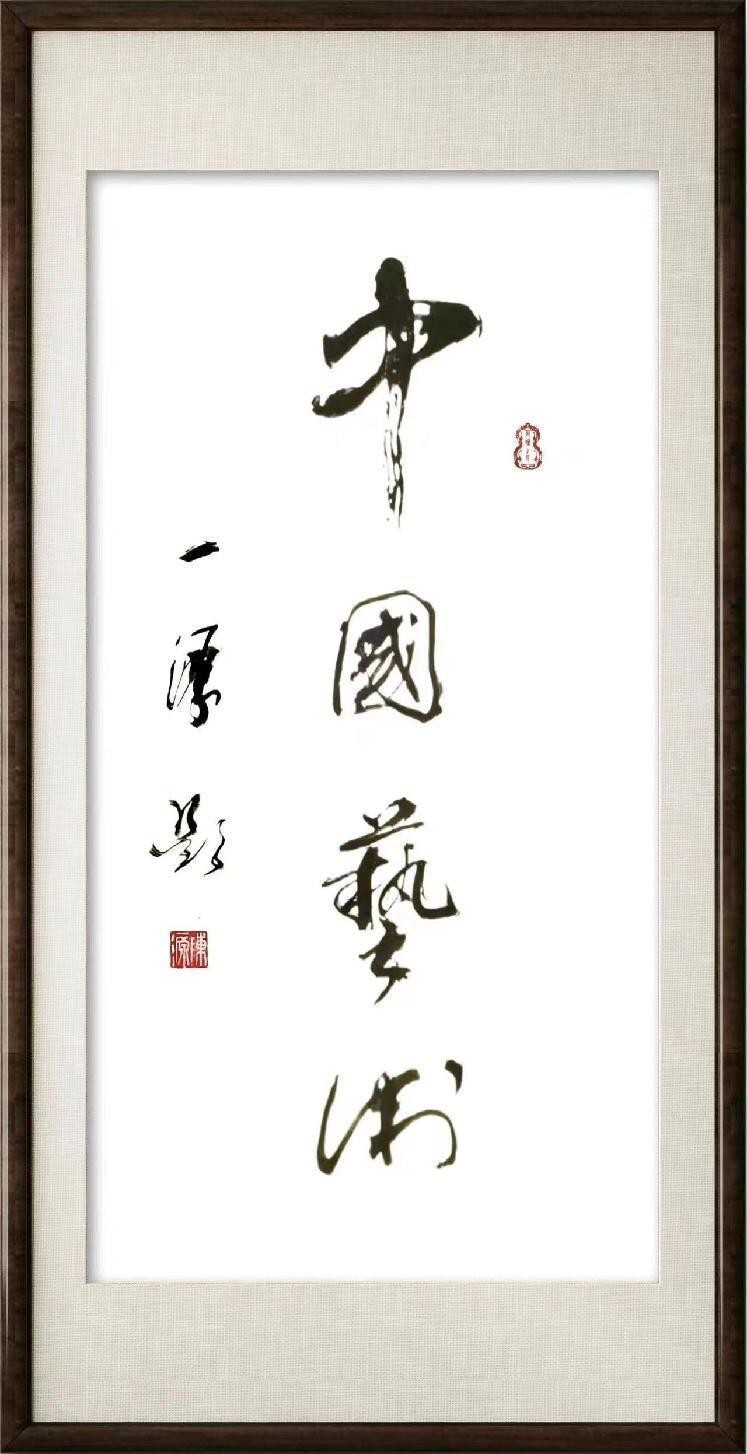 中國藝術
一源題
陳源